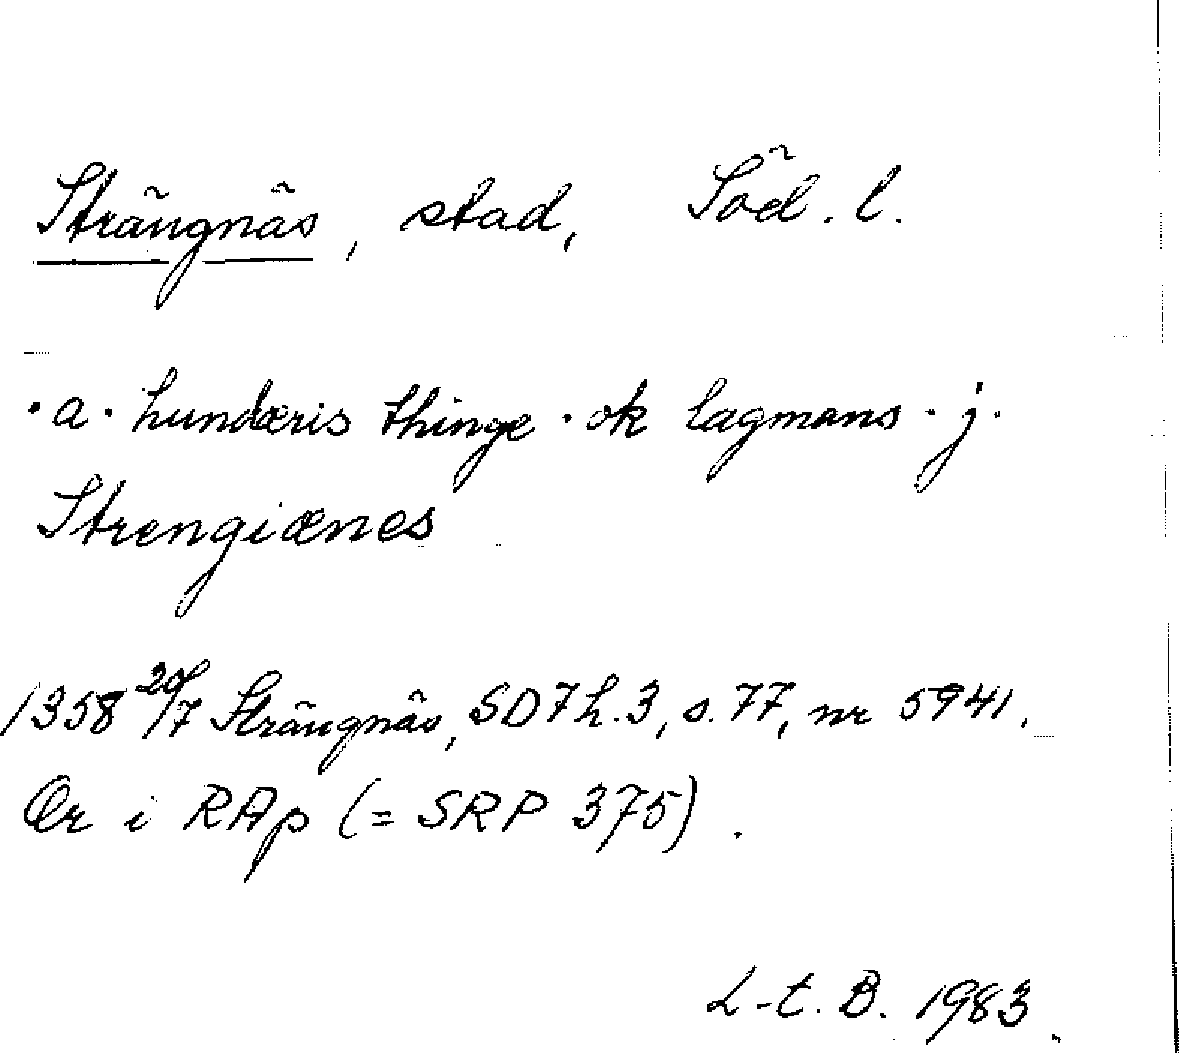 Strängnäs, stad, Söd. l.
· a · hundæris thinge · ok lagmans · j ·
Strengiænes
1358 20/7 Strängnäs, SD 7 h. 3, s. 77, nr 5941.
Or i RAp (= SRP 375).
L-t. B. 1983.